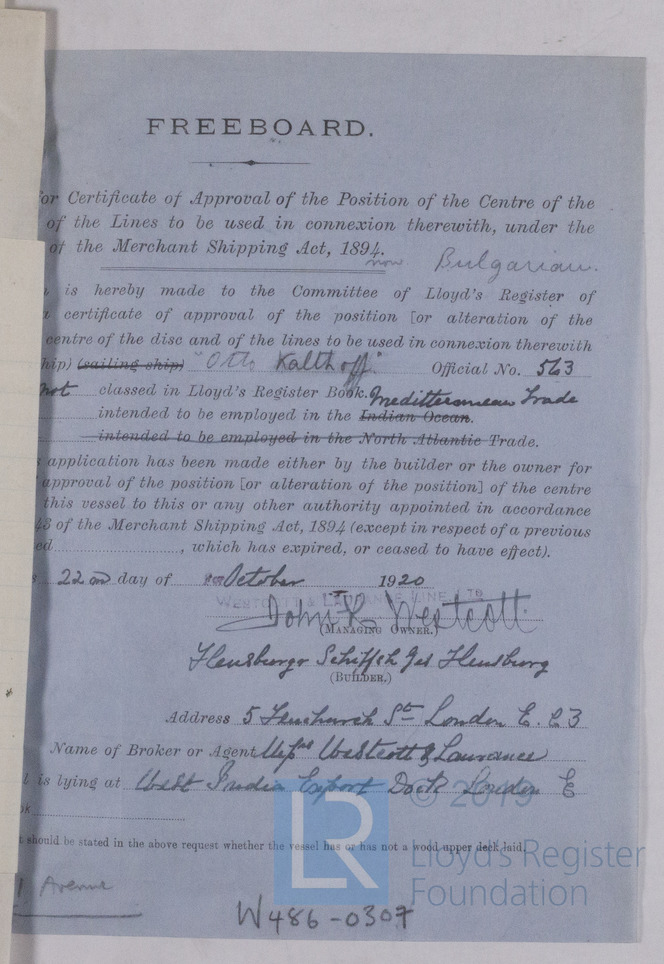 FREEBOARD.
for Certificate of Approval of the Position of the Centre of the
of the Lines to be used in connexion therewith, under the
of the Merchant Shipping Act, 1894.
now Bulgarian.
is hereby made to the Committee of Lloyd's Register of
a certificate of approval of the position [or alteration of the
centre of the disc and of the lines to be used in connexion therewith
hip) (sailing ship) "Otto Kalthoff" Official No. 563
not classed in Lloyd's Register Book. Meditterenean Trade
intended to be employed in the Indian Ocean.
intended to be employed in the North Atlantic Trade.
s application has been made either by the builder or the owner for
approval of the position [or alteration of the position] of the centre
this vessel to this or any other authority appointed in accordance
43 of the Merchant Shipping Act, 1894 (except in respect of a previous
ed, which has expired, or ceased to have effect).
s 22nd day of October 1920
WESTCOTT & LAURANCE LINE, LTD
John R Westcott
(MANAGING OWNER.)
Flensburgr Schiffsh Ges Flensburg
(BUILDER.)
Address 5 Fenchurch St London E. C3
Name of Broker or Agent Messrs Westcott & Laurance
l is lying at West India Export Dock London E
ck
t should be stated in the above request whether the vessel has or has not a wood upper deck laid.
Avenue
W486-0307
LR
© 2019
Lloyd's Register
Foundation